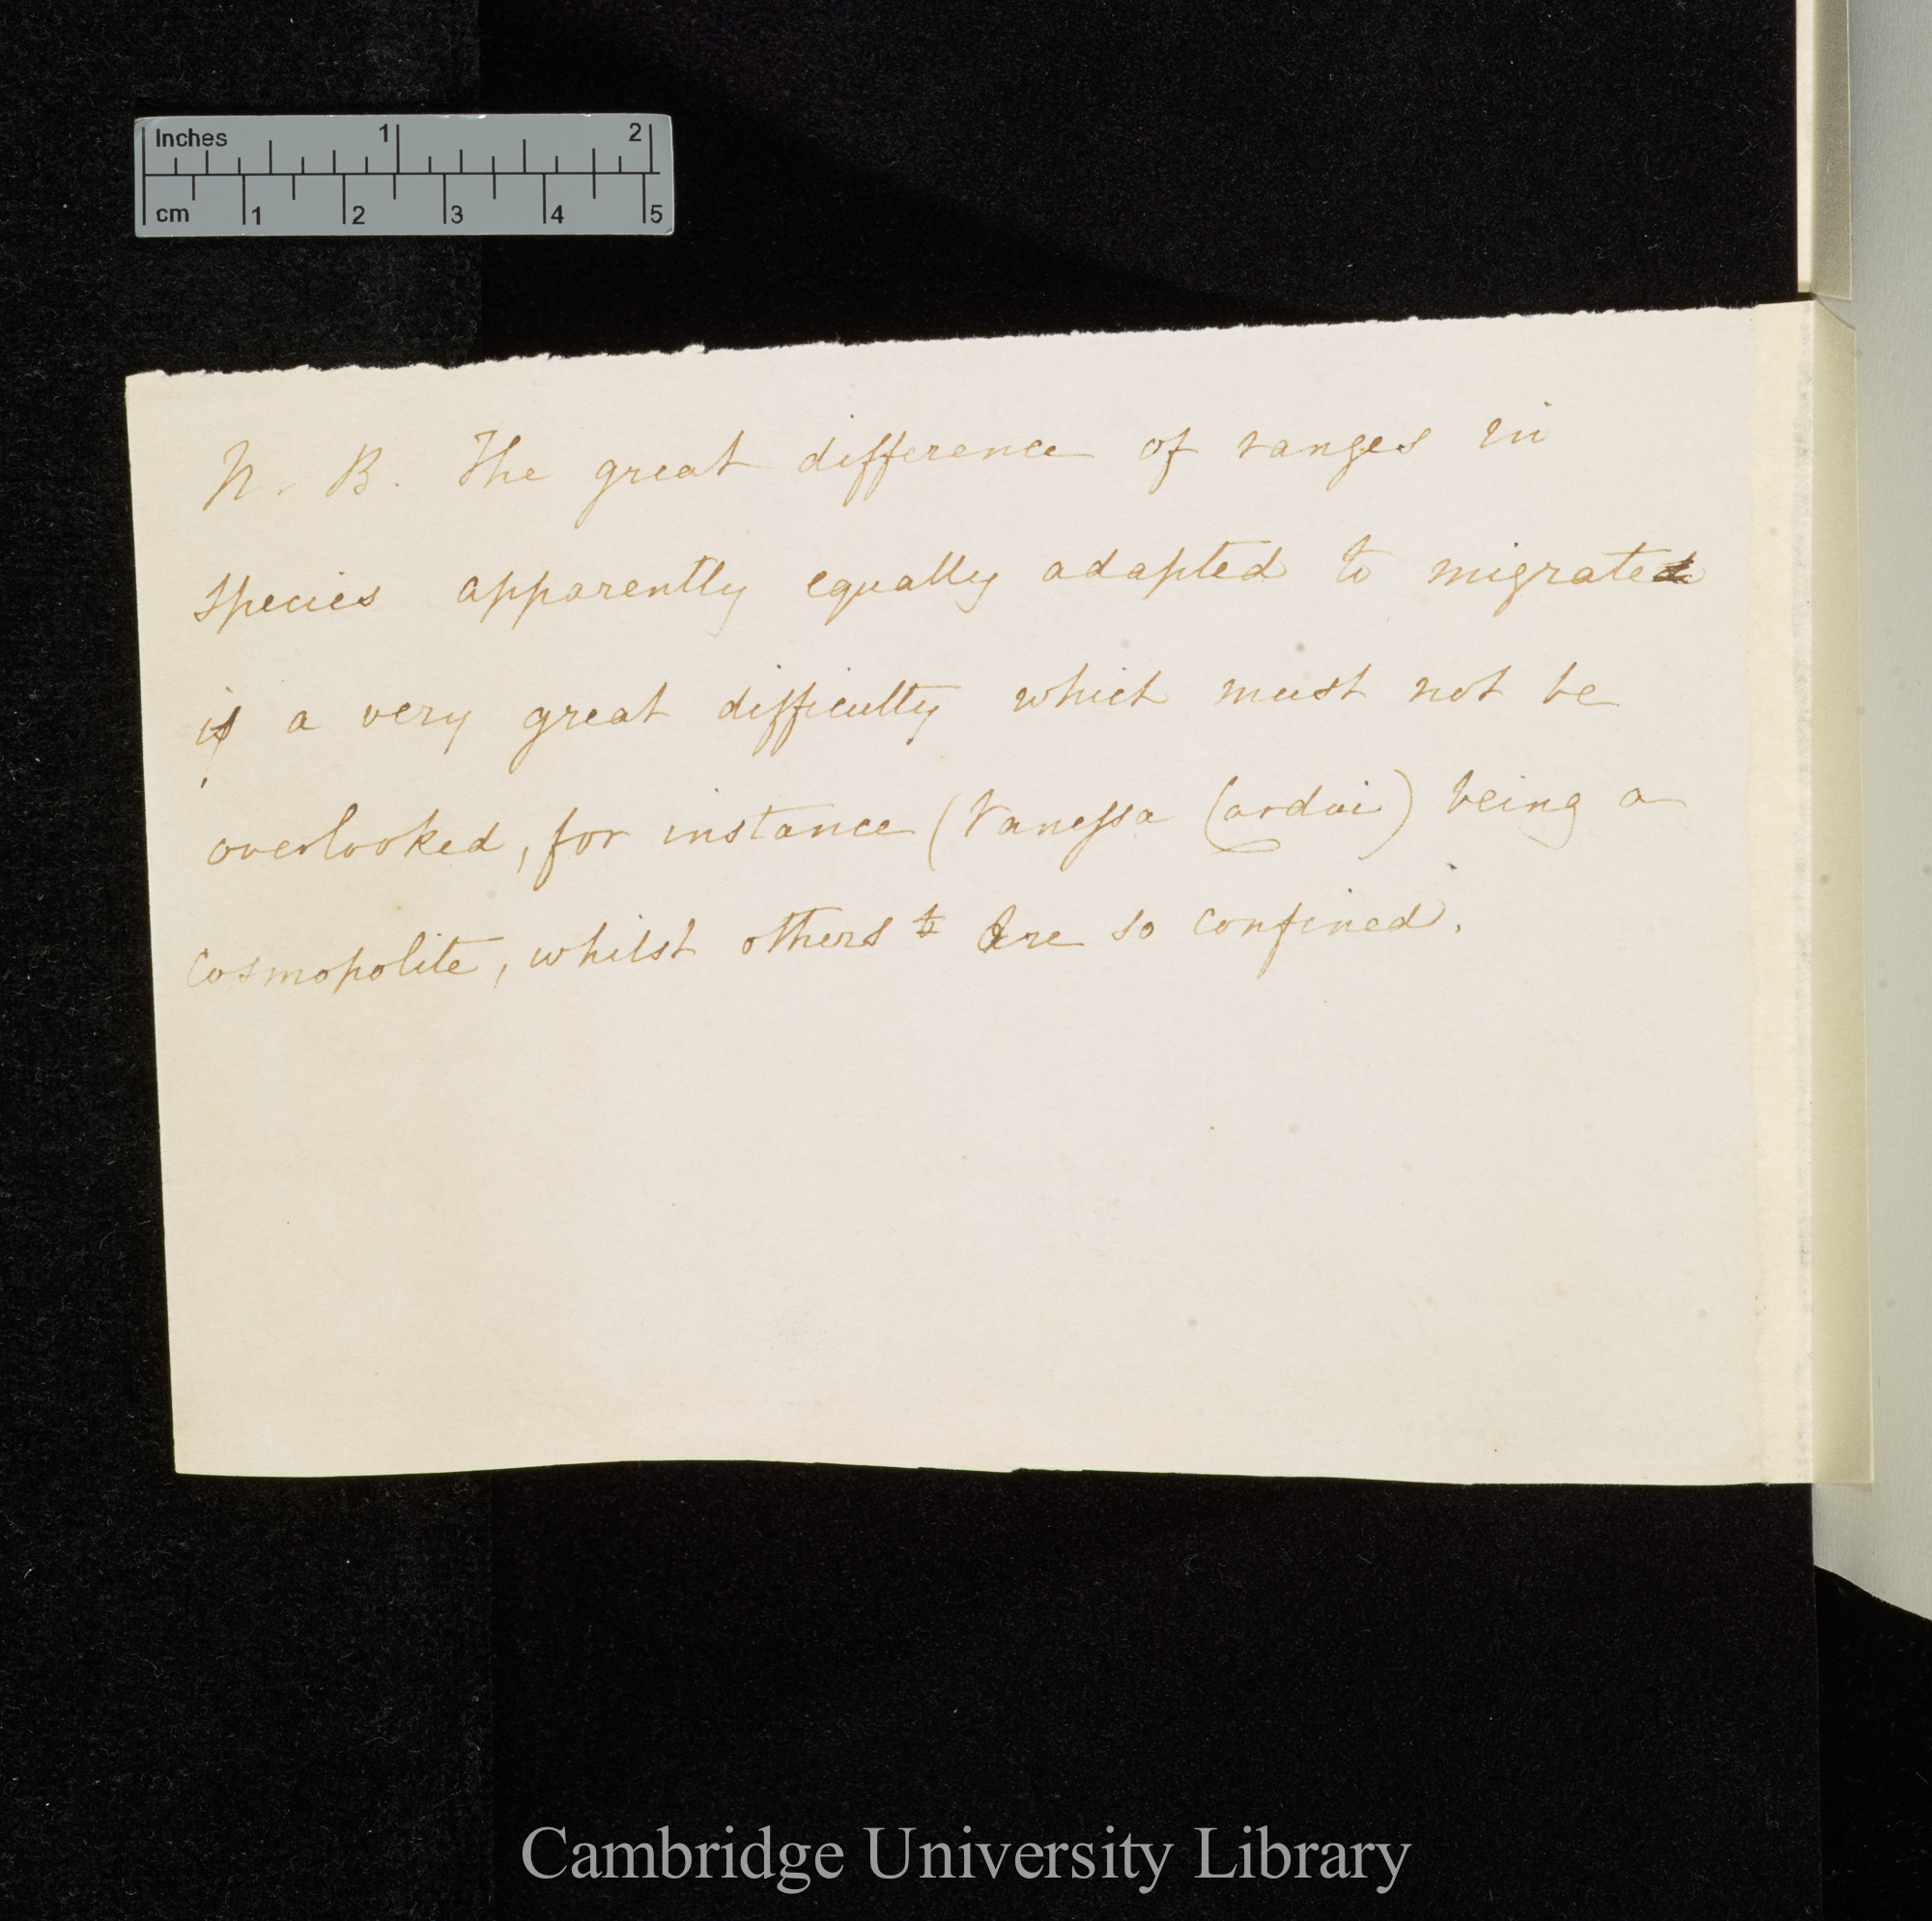 Inches 1 2
cm 1 2 3 4 5
N. B. The great difference of ranges in
species apparently equally adapted to migrate
is a very great difficulty which must not be
overlooked, for instance (Vanessa Cardui) being a
cosmopolite, whilst others are so confined.
Cambridge University Library